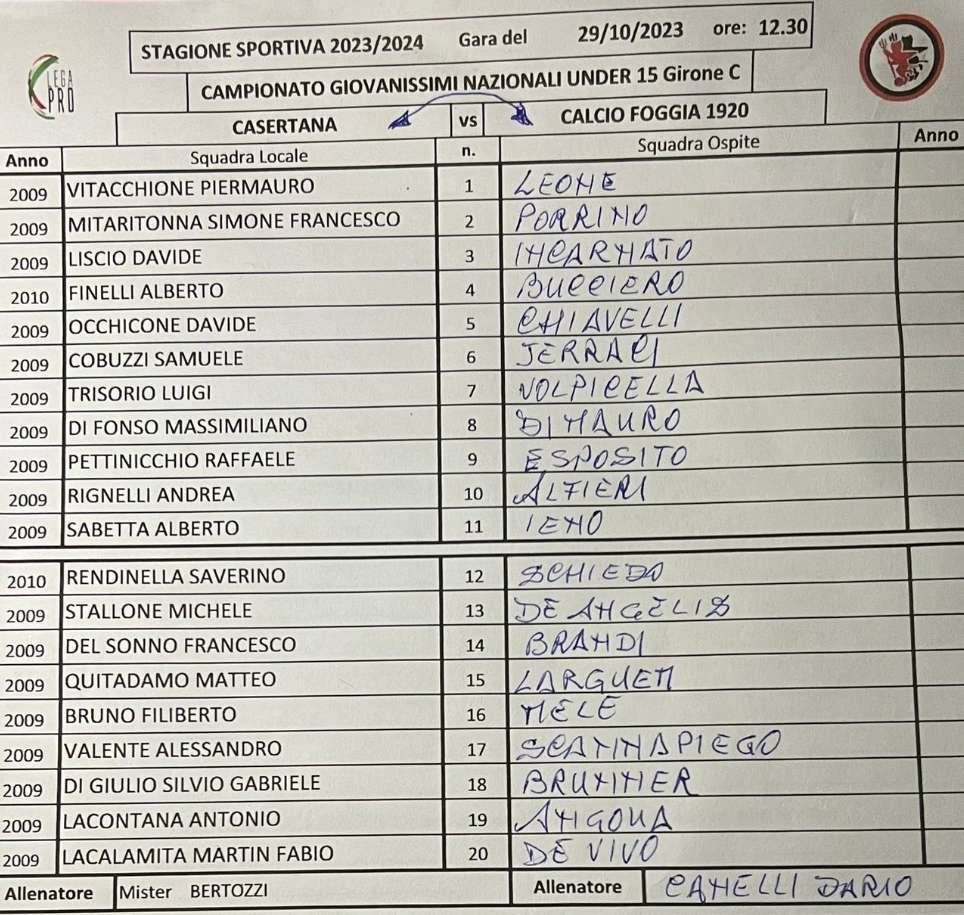 STAGIONE SPORTIVA 2023/2024 Gara del 29/10/2023 ore: 12.30
LEGA PRO
CAMPIONATO GIOVANISSIMI NAZIONALI UNDER 15 Girone C
CASERTANA vs CALCIO FOGGIA 1920
Anno Squadra Locale n. Squadra Ospite Anno
2009 VITACCHIONE PIERMAURO 1 LEONE
2009 MITARITONNA SIMONE FRANCESCO 2 PORRINO
2009 LISCIO DAVIDE 3 INCARNATO
2010 FINELLI ALBERTO 4 BUCCIERO
2009 OCCHICONE DAVIDE 5 CHIAVELLI
2009 COBUZZI SAMUELE 6 JERRACI
2009 TRISORIO LUIGI 7 VOLPICELLA
2009 DI FONSO MASSIMILIANO 8 DI MAURO
2009 PETTINICCHIO RAFFAELE 9 ESPOSITO
2009 RIGNELLI ANDREA 10 ALFIERI
2009 SABETTA ALBERTO 11 IENO
2010 RENDINELLA SAVERINO 12 SCHIEDO
2009 STALLONE MICHELE 13 DE ANGELIS
2009 DEL SONNO FRANCESCO 14 BRANDI
2009 QUITADAMO MATTEO 15 LARGUEM
2009 BRUNO FILIBERTO 16 MELE
2009 VALENTE ALESSANDRO 17 SCANNAPIEGO
2009 DI GIULIO SILVIO GABRIELE 18 BRUNNER
2009 LACONTANA ANTONIO 19 ANGONA
2009 LACALAMITA MARTIN FABIO 20 DE VIVO
Allenatore Mister BERTOZZI Allenatore CANELLI DARIO